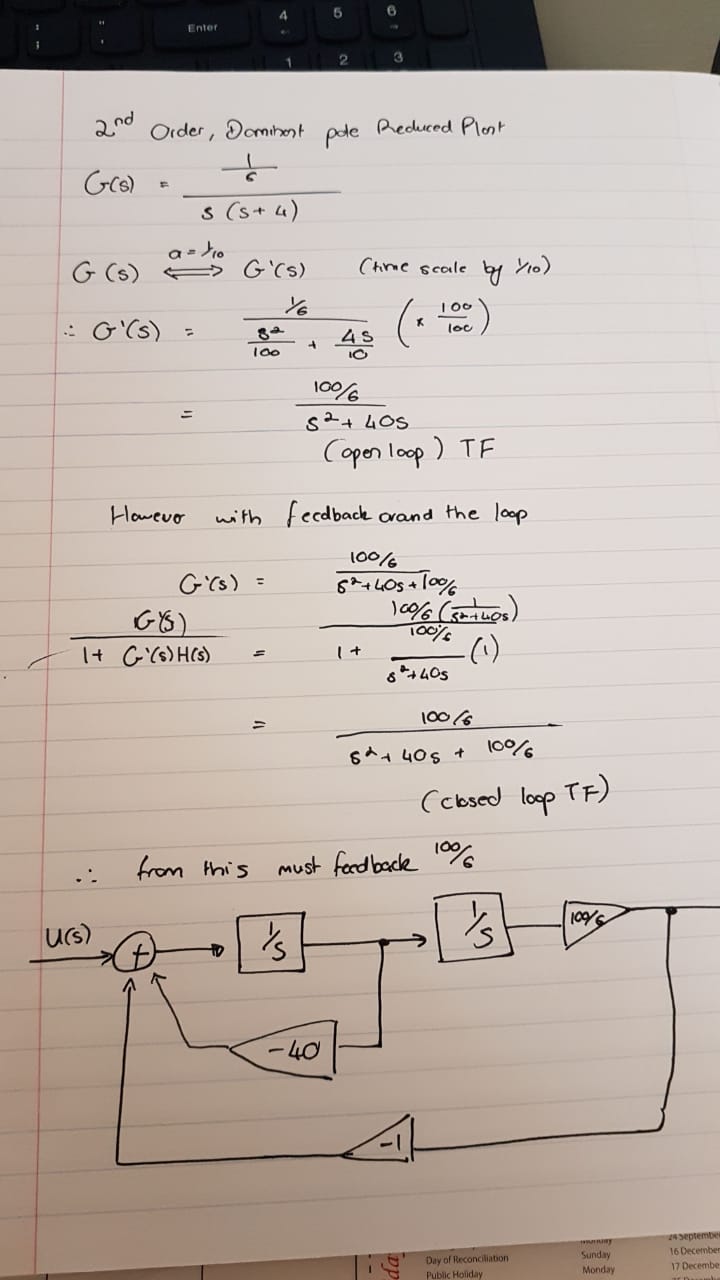 Enter
4
5
6
1
2
3
2nd Order, Dominant pole Reduced Plant
G(s) = 1/6 / s (s+4)
G(s) a = 1/10 ⟺ G'(s) (time scale by 1/10)
∴ G'(s) = 1/6 / (s²/100 + 4s/10) (× 100/100)
= 100/6 / s²+ 40s
(open loop) TF
However with feedback around the loop
G'(s) = 100/6 / s²+40s+100/6
G'(s) / 1+ G'(s)H(s) = 100/6 (1/s²+40s) / 1 + 100/6 / s²+40s (1)
= 100/6 / s²+ 40s + 100/6
(closed loop TF)
∴ from this must feedback 100/6
U(s)
+
1/s
1/s
100/6
-40
-1
Day of Reconciliation
Public Holiday
Sunday
Monday
24 September
16 December
17 December